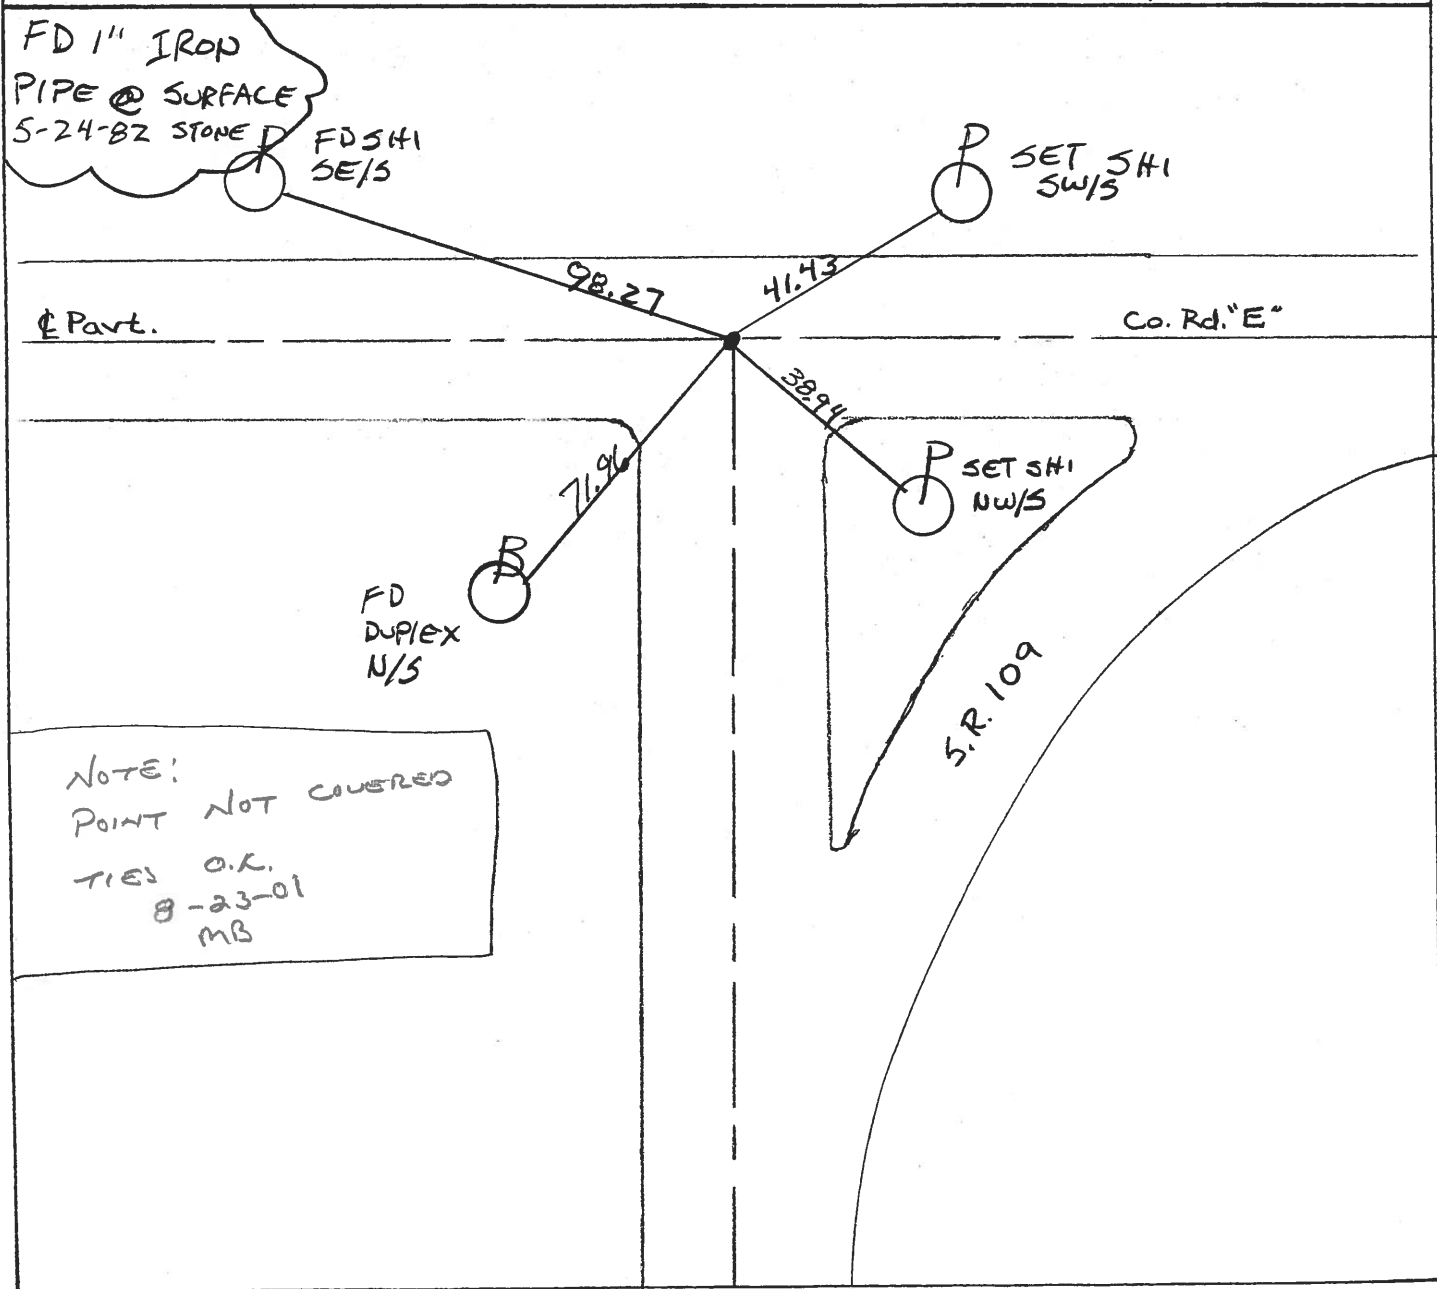 FD 1" IRON
PIPE @ SURFACE
5-24-82 STONE
P
FD SHI
SE/S
P
SET SHI
SW/S
98.27
41.43
℄ Pavt.
Co. Rd. "E"
38.94
71.96
P
SET SHI
NW/S
B
FD
DUPLEX
N/S
S.R. 109
NOTE:
POINT NOT COVERED
TIES O.K.
8-23-01
MB